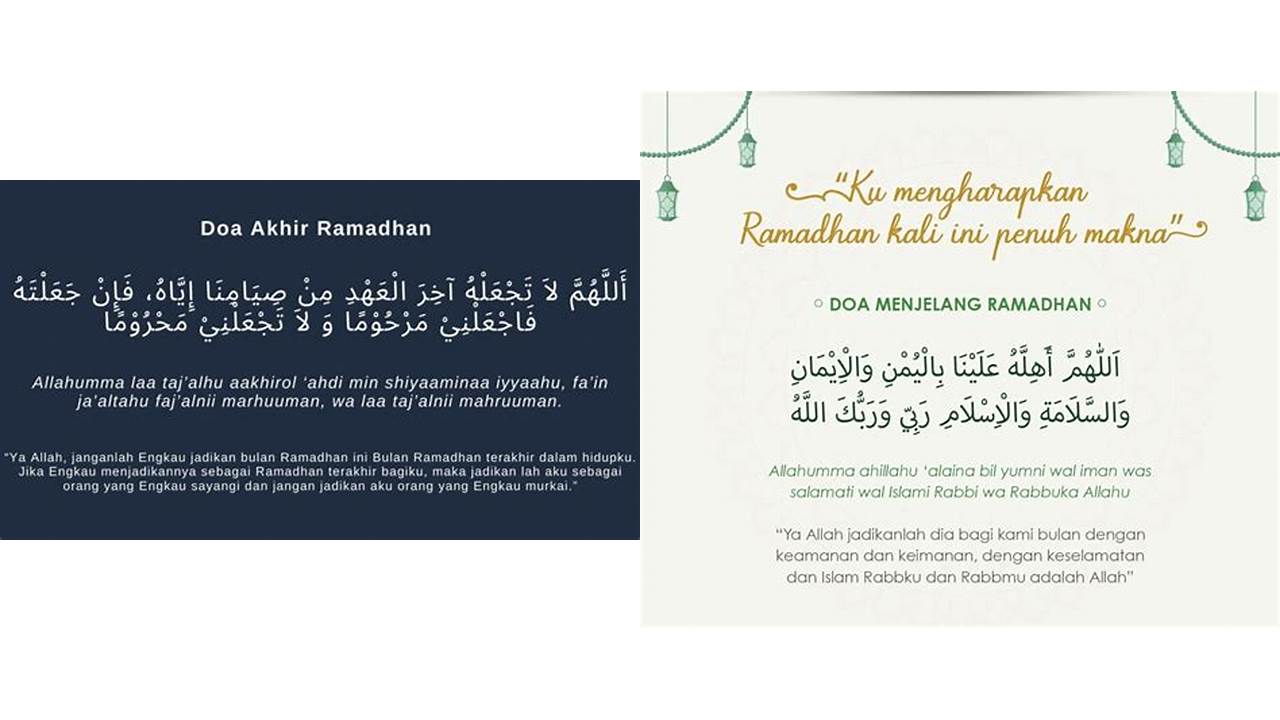 Doa Akhir Ramadhan
أَللَّهُمَّ لاَ تَجْعَلْهُ آخِرَ الْعَهْدِ مِنْ صِيَامِنَا إِيَّاهُ، فَإِنْ جَعَلْتَهُ
فَاجْعَلْنِيْ مَرْحُوْمًا وَ لاَ تَجْعَلْنِيْ مَحْرُوْمًا
Allahumma laa taj’alhu aakhirol ‘ahdi min shiyaaminaa iyyaahu, fa’in
ja’altahu faj’alnii marhuuman, wa laa taj’alnii mahruuman.
"Ya Allah, janganlah Engkau jadikan bulan Ramadhan ini Bulan Ramadhan terakhir dalam hidupku.
Jika Engkau menjadikannya sebagai Ramadhan terakhir bagiku, maka jadikan lah aku sebagai
orang yang Engkau sayangi dan jangan jadikan aku orang yang Engkau murkai."
“Ku mengharapkan
Ramadhan kali ini penuh makna”
DOA MENJELANG RAMADHAN
اَللّٰهُمَّ أَهِلَّهُ عَلَيْنَا بِالْيُمْنِ وَالْإِيْمَانِ
وَالسَّلَامَةِ وَالْإِسْلَامِ رَبِّيْ وَرَبُّكَ اللَّهُ
Allahumma ahillahu ‘alaina bil yumni wal iman was
salamati wal Islami Rabbi wa Rabbuka Allahu
“Ya Allah jadikanlah dia bagi kami bulan dengan
keamanan dan keimanan, dengan keselamatan
dan Islam Rabbku dan Rabbmu adalah Allah”